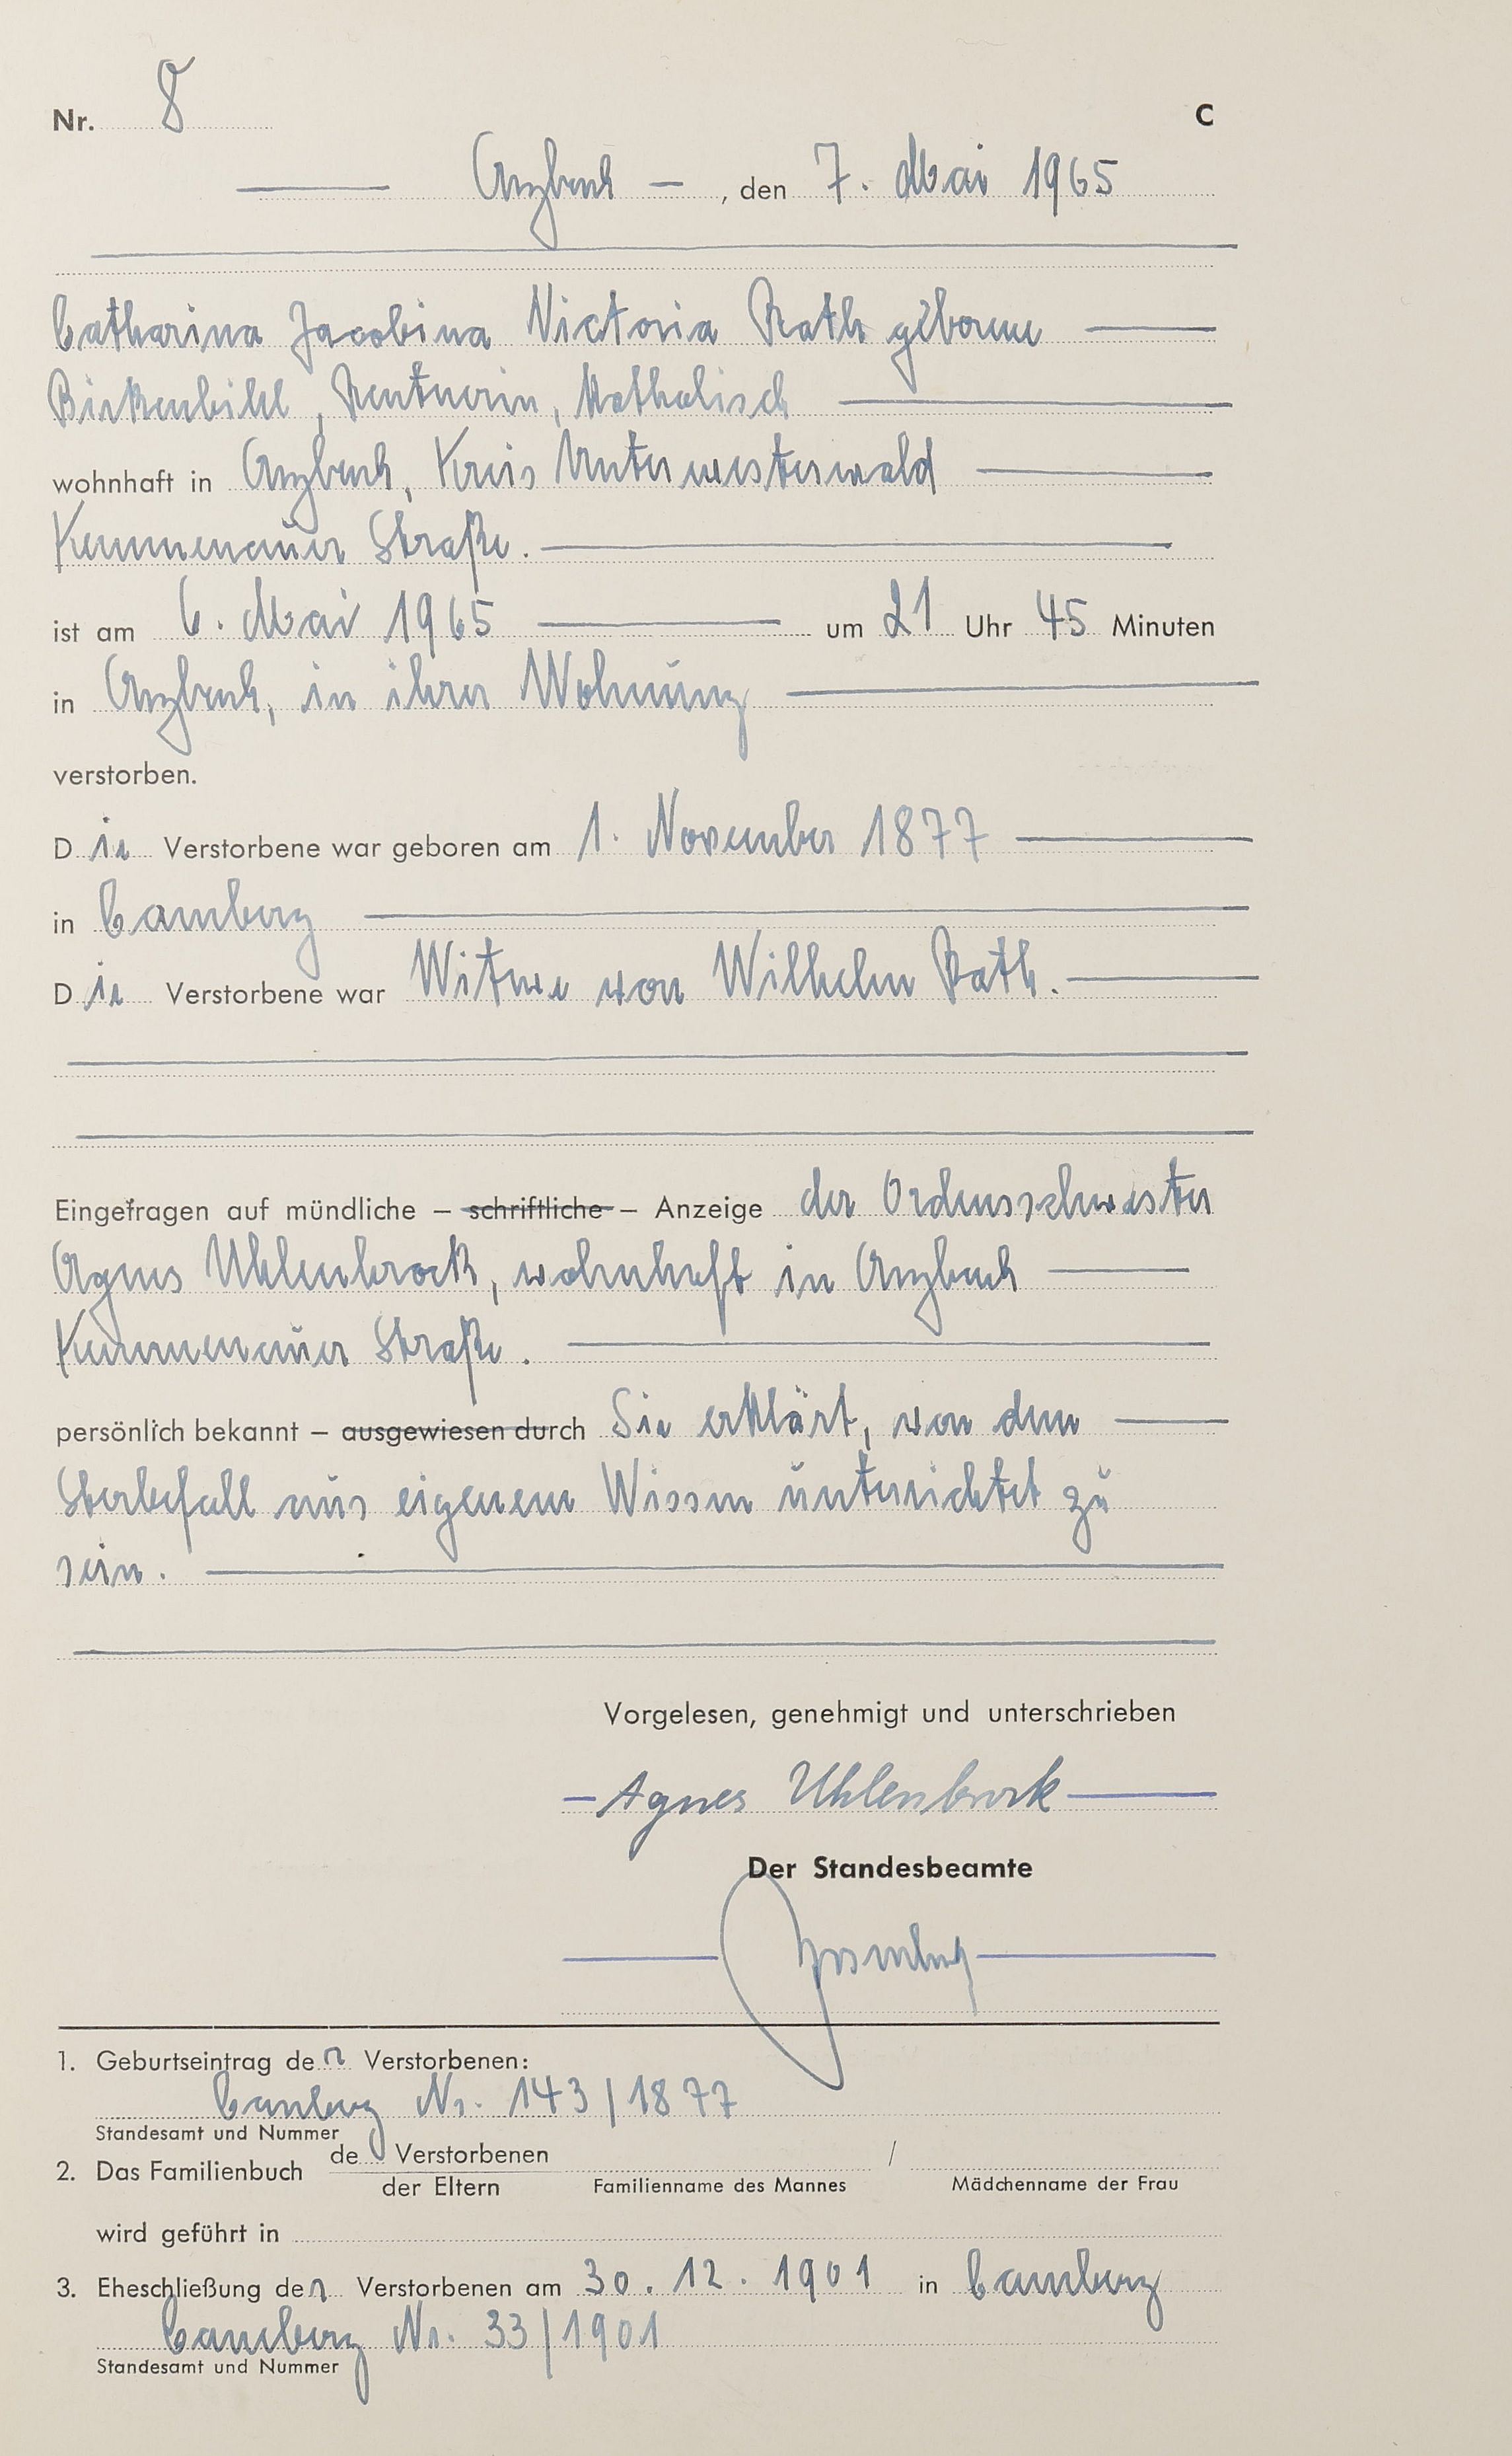 Nr. 8 C
Arzbach —, den 7. Mai 1965
Catharina Jacobina Victoria Rath geborene
Birkenbihl, Rentnerin, katholisch
wohnhaft in Arzbach, Kreis Unterwesterwald
Kemmenauer Straße.
ist am 6. Mai 1965 um 21 Uhr 45 Minuten
in Arzbach, in ihrer Wohnung
verstorben.
Die Verstorbene war geboren am 1. November 1877
in Camberg
Die Verstorbene war Witwe von Wilhelm Rath.
Eingetragen auf mündliche – schriftliche – Anzeige der Ordensschwester
Agnes Uhlenbrock, wohnhaft in Arzbach
Kemmenauer Straße.
persönlich bekannt – ausgewiesen durch Sie erklärt, von dem
Sterbefall aus eigenem Wissen unterrichtet zu
sein.
Vorgelesen, genehmigt und unterschrieben
Agnes Uhlenbrock
Der Standesbeamte
1. Geburtseintrag der Verstorbenen:
Camberg Nr. 143/1877
Standesamt und Nummer
2. Das Familienbuch de Verstorbenen /
der Eltern Familienname des Mannes Mädchenname der Frau
wird geführt in
3. Eheschließung der Verstorbenen am 30. 12. 1901 in Camberg
Camberg Nr. 33/1901
Standesamt und Nummer